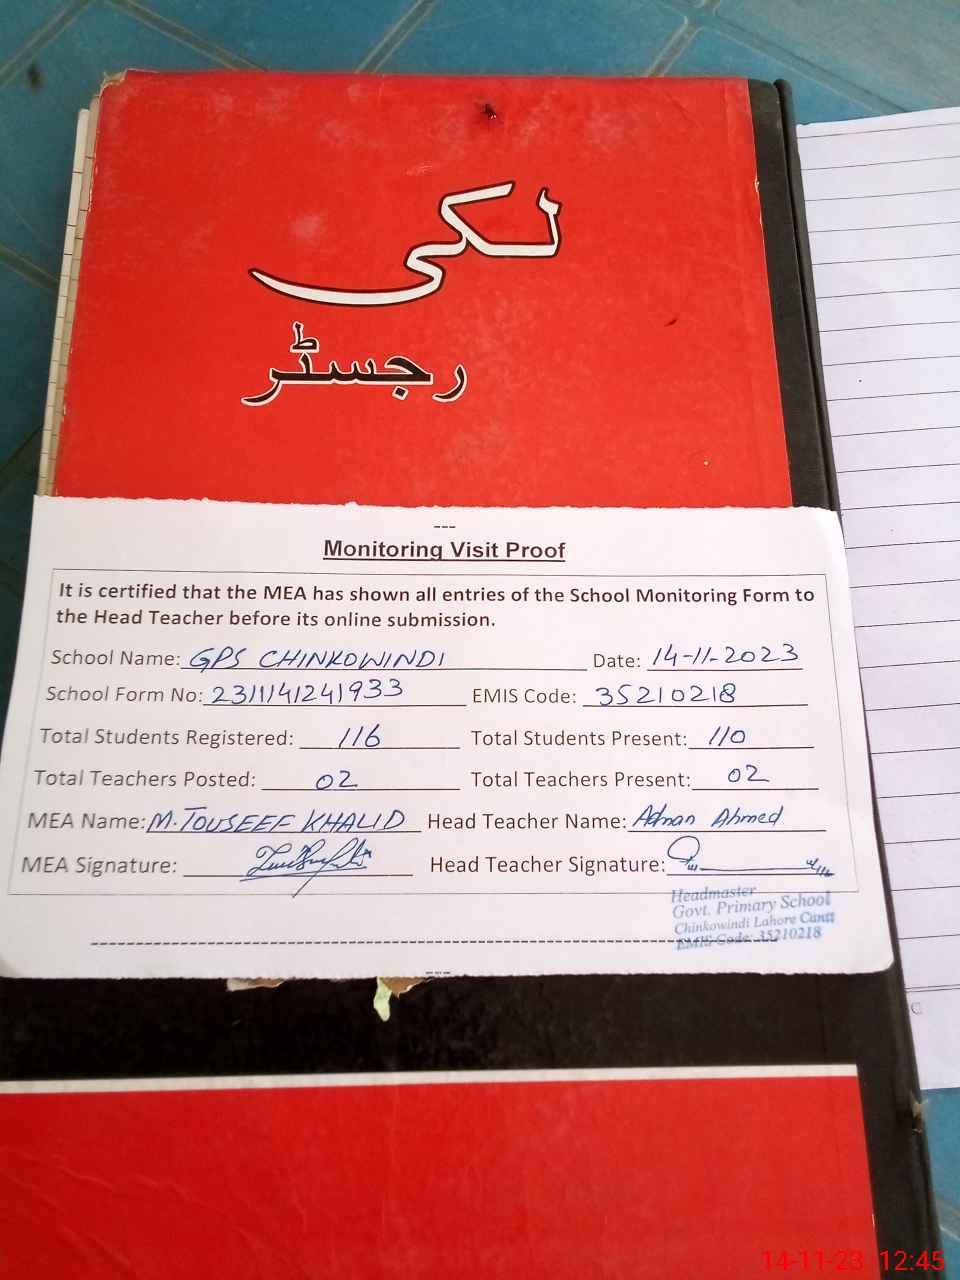 لکی
رجسٹر
---
Monitoring Visit Proof
It is certified that the MEA has shown all entries of the School Monitoring Form to
the Head Teacher before its online submission.
School Name: GPS CHINKOWINDI Date: 14-11-2023
School Form No: 2311141241933 EMIS Code: 35210218
Total Students Registered: 116 Total Students Present: 110
Total Teachers Posted: 02 Total Teachers Present: 02
MEA Name: M. TOUSEEF KHALID Head Teacher Name: Adnan Ahmed
MEA Signature: Head Teacher Signature:
Headmaster
Govt. Primary School
Chinkowindi Lahore Cantt
EMIS Code: 35210218
---
C
14-11-23 12:45